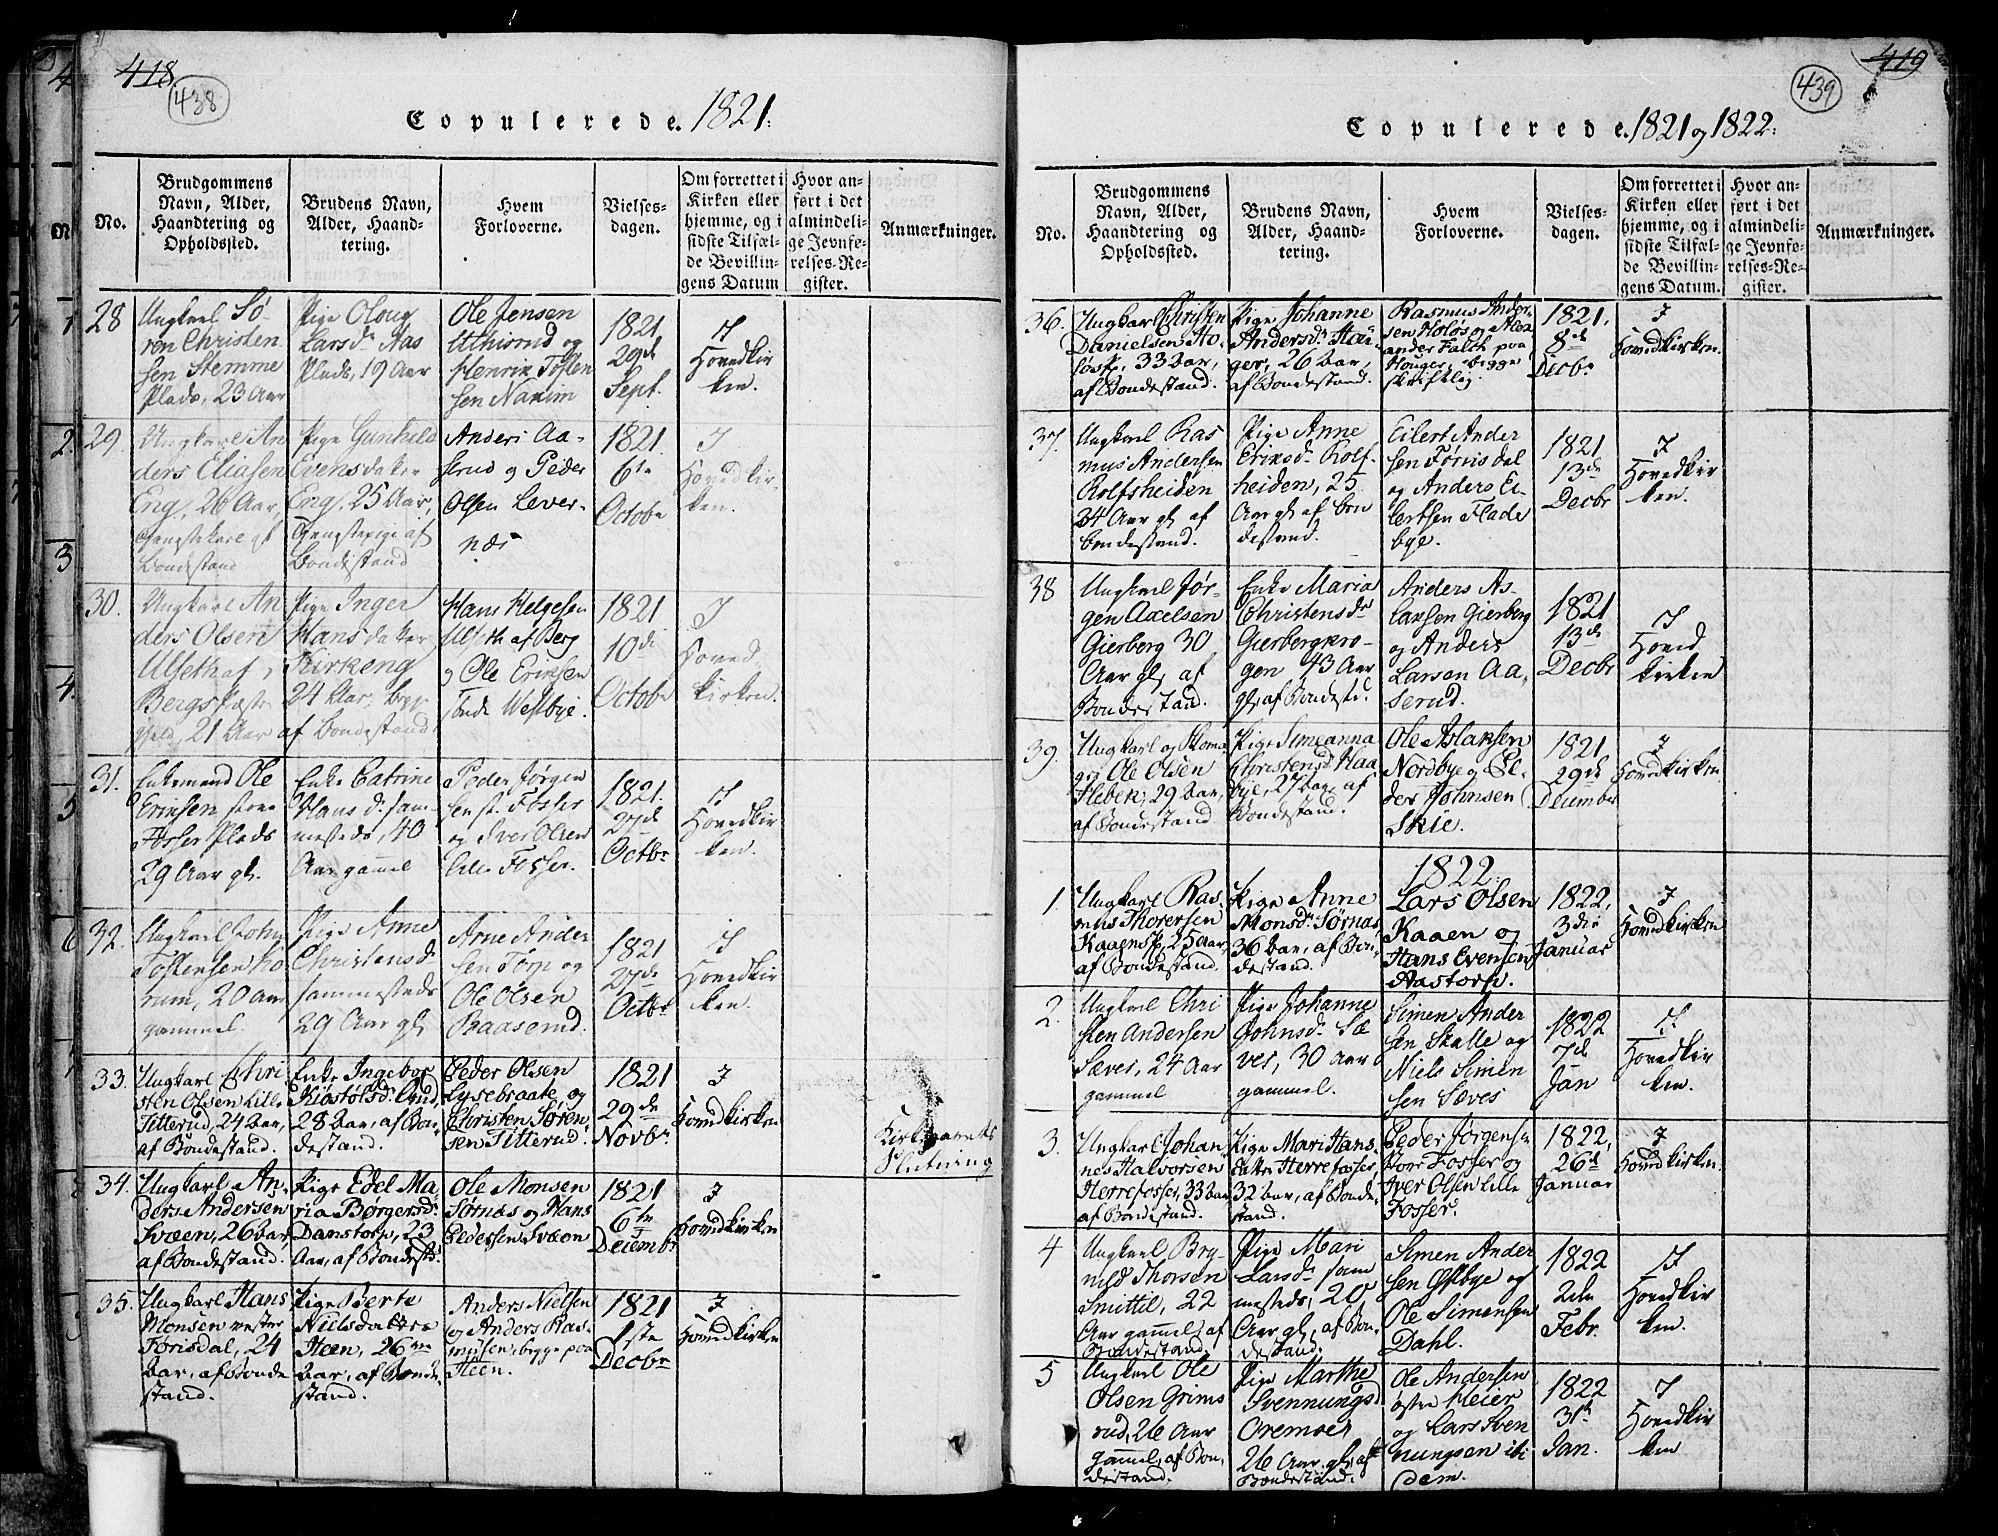 418
438
Copulerede. 1821.
No.
Brudgommens
Navn, Alder,
Haandtering og
Opholdssted.
Brudens Navn,
Alder, Haand-
tering.
Hvem
Forloverne.
Vielses-
dagen.
Om forrettet i
Kirken eller
hjemme, og i
sidste Tilfæl-
de Bevillin-
gens Datum
Hvor an-
ført i det
almindeli-
ge Jevnfø-
relses-Re-
gister.
Anmærkninger.
28
Ungkarl Sø-
ren Christen
sen Stemme
Plads, 23 Aar
Pige Oloug
Larsd. Aas
Plads, 19 Aar
Ole Jensen
og
Henrik Tosten
sen Narim
1821
29de
Sept.
I
Hovedkir
ken.
29.
Ungkarl An
ders Eliasen
Eng, 26 Aar,
Bondestand
Pige Gunhild
Evensdatter
Eng, 25 Aar,
Tjenstepige af
Bondestand
Anders Aa-
serud og Peder
Olsen Lever-
næs
1821
6te
Octobr
I
Hovedkir
ken.
30.
Ungkarl An
ders Olsen
Ulseth af
Bergs Præste
gjeld, 21 Aar
Pige Inger
Hansdatter
Kirkeng
24 Aar, beg-
af Bondestand
Hans Helgesen
Ulseth af Berg
og Ole Eriksen
Westbye.
1821
10de
Octobr
I
Hoved-
kirken.
31.
Enkemand Ole
Eriksen store
Fosser Plads
29 Aar gl.
Enke Catrine
Hansd. sam-
mesteds, 40
Aar gammel
Peder Jørgen
sen st. Fosser
og Iver Olsen
Lille Fosser.
1821.
27de
Octbr
I
Hovedkir
ken.
32.
Ungkarl John
Tostensen
rum, 20 Aar
gammel.
Pige Anne
Christensd.
sammesteds
29 Aar gl.
Arne Ander
sen Torp og
Ole Olsen
Raaserud.
1821
27de
Octbr
I
Hovedkir
ken.
33.
Ungkarl Chri
sten Olsen Lille
Titterud, 24 Aar,
af Bondestand.
Enke Ingebor
Kiøstolsd.
28 Aar, af Bon-
destand.
Peder Olsen
Lysebraate og
Christen Søren
sen Titterud.
1821
29de
Novbr
I
Hovedkirken
Kirkegaarets
Slutning
34.
Ungkarl An-
ders Andersen
Svæen, 26 Aar
af Bondestand.
Pige Edel Ma-
ria Børgersd.
Danstorp, 23
Aar, af Bondestd.
Ole Monsen
Sørnæs og Hans
Pedersen Svæen
1821
6te
Decembr
I
Hovedkirken
35.
Ungkarl Hans
Monsen vester
Førisdal, 24
Aar, af Bonde
stand.
Pige Berte
Nielsdatter
Heen, 26
Aar, af Bonde
stand.
Anders Nielsen
og Anders Ras-
musen, begge paa
Heen.
1821
1ste
Decbr
I
Hovedkirken
419
439
Copulerede. 1821 og 1822.
No.
Brudgommens
Navn, Alder,
Haandtering og
Opholdssted.
Brudens Navn,
Alder, Haand-
tering.
Hvem
Forloverne.
Vielses-
dagen.
Om forrettet i
Kirken eller
hjemme, og i
sidste Tilfæl-
de Bevillin-
gens Datum.
Hvor an-
ført i det
almindeli-
ge Jevnfø-
relses-Re-
gister.
Anmærkninger.
36.
Ungkarl Christen
Danielsen Ho-
løsp., 33 Aar,
af Bondestand.
Pige Johanne
Andersd. Hau-
ger, 26 Aar,
af Bondestand.
Rasmus Ander-
sen Holøs og Alex-
ander Falch paa
Houger, begge
skriftlig.
1821.
8de
Decbr
I
Hovedkirken.
37.
Ungkarl Ras
mus Andersen
Rolfsheiden
34 Aar gl. af
Bondestand.
Pige Anne
Eriksd. Rolf-
heiden, 25
Aar gl. af Bon
destand.
Eilert Ander
sen Førisdal
og Anders Ei-
lertsen Flade
bye.
1821
13de
Decbr
I
Hovedkir
ken.
38
Ungkarl Jør-
gen Axelsen
Gierberg 30
Aar gl. af
Bondestand.
Enke Maria
Christensd.
Gierbergkro-
gen 43 Aar
gl. af Bondestd.
Anders As-
laksen Gierberg
og Anders
Larsen Aa-
serud.
1821
13de
Decbr
I
Hoved
kirken
39.
Ungkarl og Skoma
ger Ole Olsen
Flebek, 29 Aar,
af Bondestand.
Pige Simeanna
Christensd. Haa
bye, 27 Aar, af
Bondestand.
Ole Aslaksen
Nordbye og Pe-
der Johnsen
Skie.
1821.
29de
December
I
Hovedkirken
1822.
1.
Ungkarl Ras-
mus Thorersen
Kaaensp., 25 Aar,
af Bondestand.
Pige Anne
Monsd. Sørnæs,
36 Aar, af Bon-
destand.
Lars Olsen
Kaaen og
Hans Evensen
Aastorp.
1822,
3die
Januar
I
Hovedkirken
2.
Ungkarl Chri
sten Andersen
Sæves, 24 Aar
gammel
Pige Johanne
Johnsd. Sæ-
ves, 30 Aar
gammel.
Simen Ander
sen Skalle og
Niels Simen
sen Sæves
1822
7de
Jan
I
Hovedkir
ken.
3.
Ungkarl Johan
nes Halvorsen
Herrefosser, 33 Aar
af Bondestand.
Pige Mari Hans-
datter Herrefosser,
32 Aar, af Bonde-
stand.
Peder Jørgensen
Store Fosser og
Iver Olsen Lille
Fosser.
1822,
26de
Januar
I
Hovedkirken.
4
Ungkarl Bry-
nild Thorsen
Smittil, 22
Aar gammel, af
Bondestand.
Pige Mari
Larsd. sam
mesteds, 20
Aar gl., af Bon-
destand.
Simen Ander
sen Østbye og
Ole Simensen
Dahl.
1822
2den
Febr.
I
Hovedkir
ken.
5
Ungkarl Ole
Olsen Grims
rud, 26 Aar
gammel, af Bon-
destand.
Pige Marthe
Svennungsd.
Oremoer
26 Aar gl., af
Bondestand.
Ole Andersen
østre Heier
og Lars Sven
nungsen ibi
dem.
1822
31te
Jan.
I
Hovedkir
ken